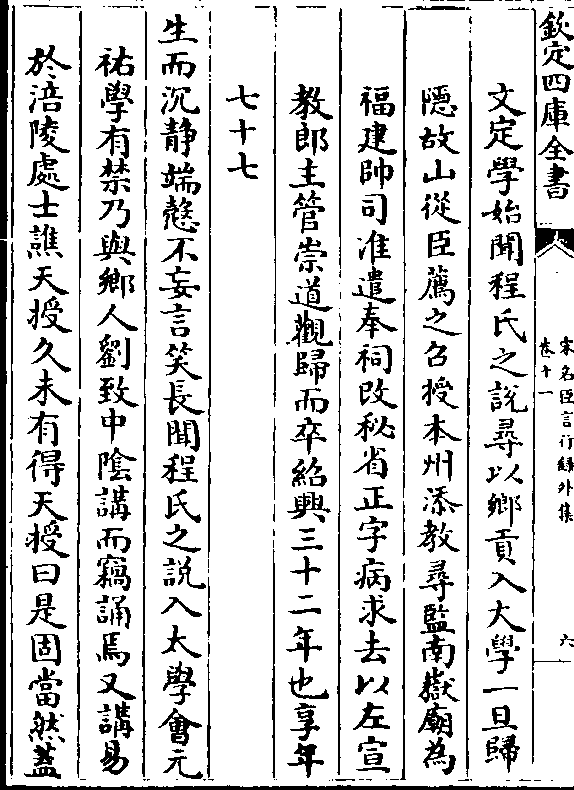 欽定四庫全書
宋名臣言行録外集
卷十一
六
文定學始聞程氏之說尋以鄉貢入大學一旦歸
隱故山從臣薦之召授本州添教尋監南嶽廟為
福建帥司准遣奉祠改秘省正字病求去以左宣
教郎主管崇道觀歸而卒紹興三十二年也享年
七十七
生而沉静端慤不妄言笑長聞程氏之説入太學㑹元
祐學有禁乃與鄉人劉致中陰講而竊誦焉又講易
於涪陵處士譙天授久未有得天授曰是固當然蓋